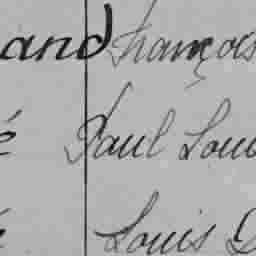 and François
é Paul Loui
é Louis D